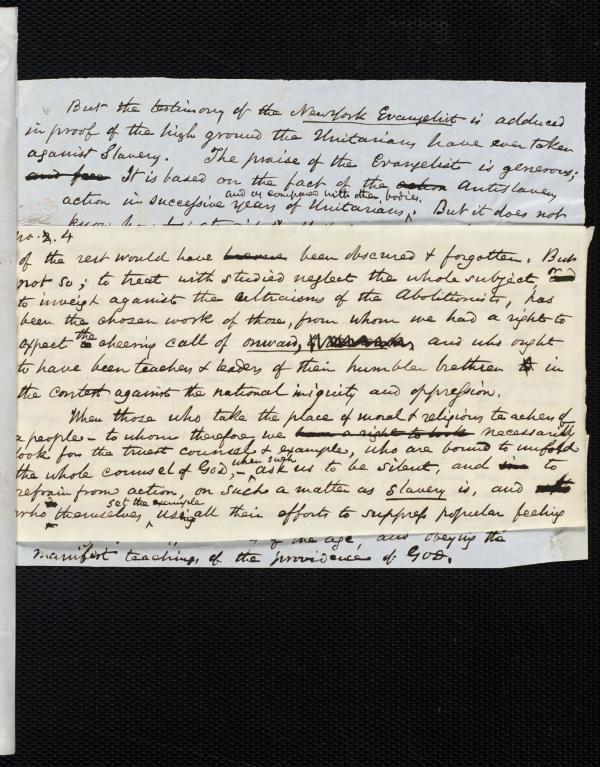 But the testimony of the New York Evangelist is adduced
in proof of the high ground the Unitarians have ever taken
against Slavery. The praise of the Evangelist is generous;
It is based on the fact of the action Antislavery
and in compared with other bodies.
action in successive years of Unitarians. But it does not
No. 3. 4
of the rest would have become been obscured & forgotten. But
not so; to treat with studied neglect the whole subject, and
to inveigh against the ultraisms of the Abolitionists, has
been the chosen work of those, from whom we had a right to
expect the cheering call of onward, and who ought
to have been teachers & leaders of their humbler brethren in
the contest against the national iniquity and oppression.
When those who take the place of moral & religious teachers of
a people - to whom therefore we have a right to look necessarily
look for the truest counsel & example, who are bound to unfold
the whole counsel of God, - when such ask us to be silent, and to
refrain from action, on such a matter as slavery is, and
set the example
who themselves, using all their efforts to suppress popular feeling
of the age, and obeying the
manifest teachings of the providence of God.